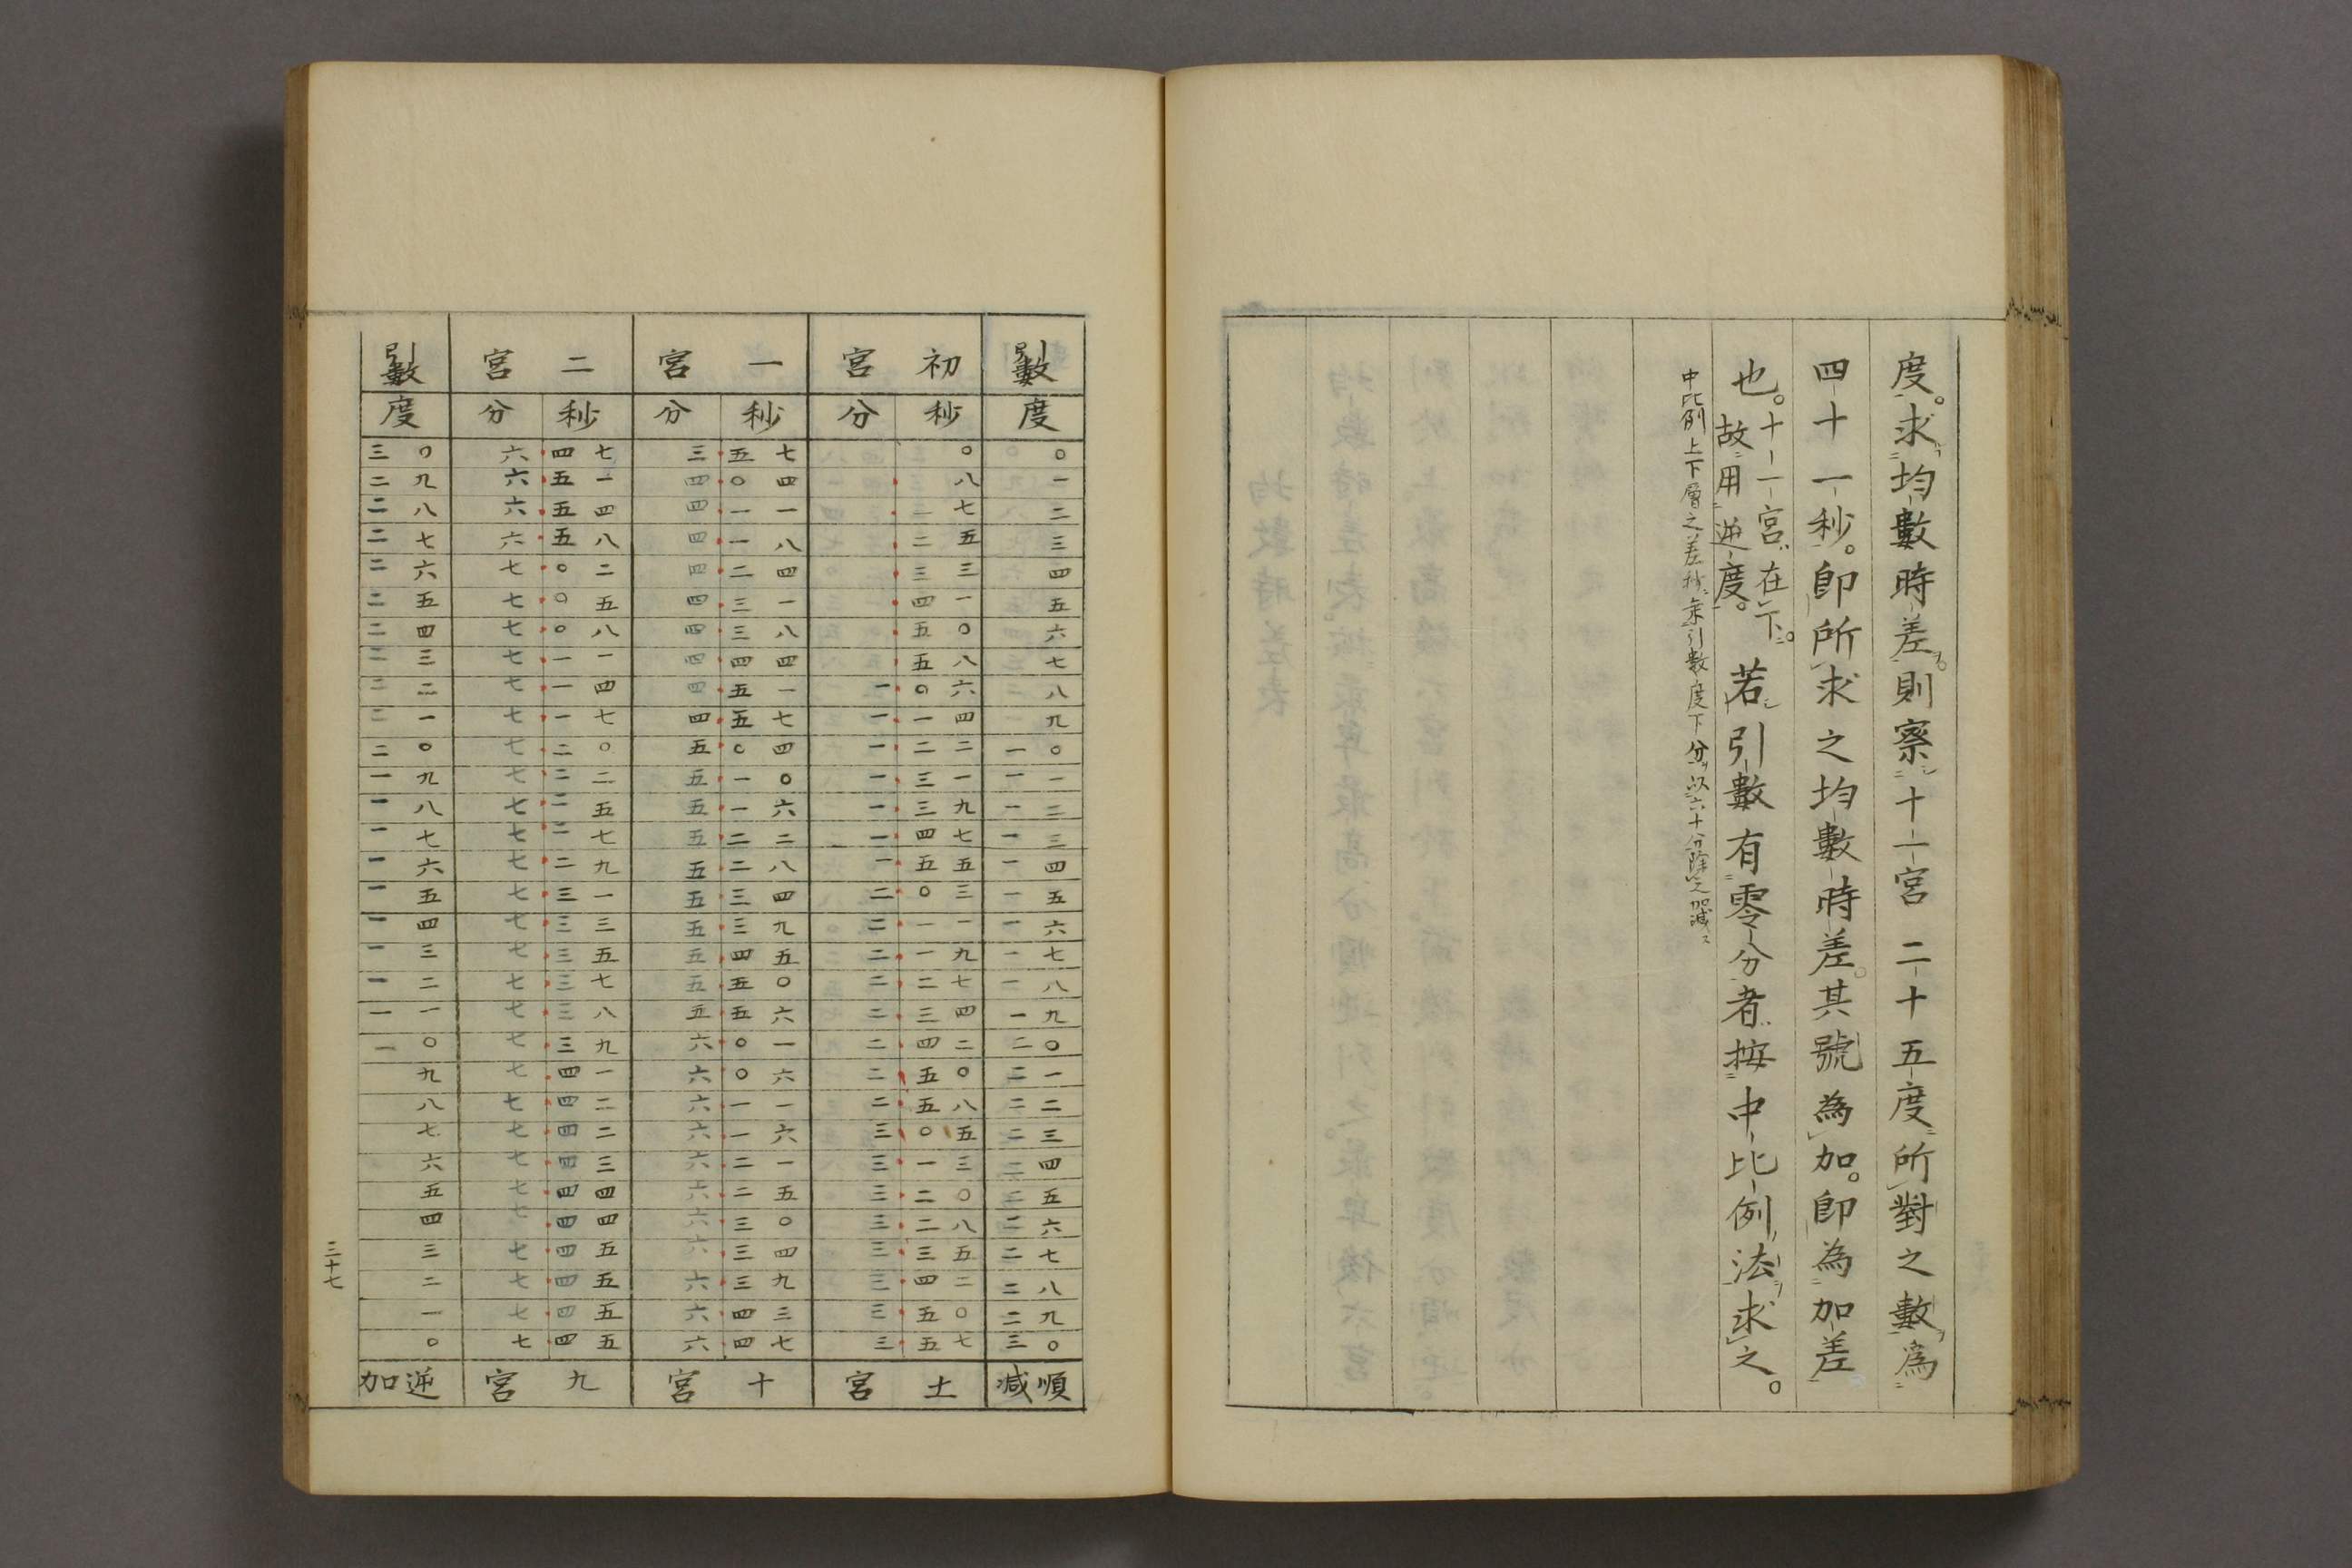 度。求均數時差。則察十一宮二十五度所對之數為
四十一秒。即所求之均數時差。其號為加。即為加差
也。十一宮在下。故用逆度。若引數有零分者按中比例法求之。
中比例上下層之差秒乘引數度下分以六十分除之加減ス
引數 初宮 一宮 二宮 引數
度 秒 分 秒 分 秒 分 度
〇 〇 三五七 六四七 三〇
一 八 四〇四 六五一 二九
二 一七 四一一 六五四 二八
三 二五 四一八 六五八 二七
四 三三 四二四 七〇二 二六
五 四一 四三一 七〇五 二五
六 五〇 四三八 七〇八 二四
七 五八 四四四 七一一 二三
八 一〇六 四五一 七一四 二二
九 一一四 四五七 七一七 二一
一〇 一二二 五〇四 七二〇 二〇
一一 一三一 五一〇 七二二 一九
一二 一三九 五一六 七二五 一八
一三 一四七 五二二 七二七 一七
一四 一五五 五二八 七二九 一六
一五 二〇三 五三四 七三一 一五
一六 二一一 五三九 七三三 一四
一七 二一九 五四五 七三五 一三
一八 二二七 五五〇 七三七 一二
一九 二三四 五五六 七三八 一一
二〇 二四二 六〇一 七三九 一〇
二一 二五〇 六〇六 七四一 九
二二 二五八 六一一 七四二 八
二三 三〇五 六一六 七四二 七
二四 三一三 六二一 七四三 六
二五 三二〇 六二五 七四四 五
二六 三二八 六三〇 七四四 四
二七 三三五 六三四 七四五 三
二八 三四二 六三九 七四五 二
二九 三五〇 六四三 七四五 一
三〇 三五七 六四七 七四五 〇
順減 十一宮 十宮 九宮 逆加
三十七